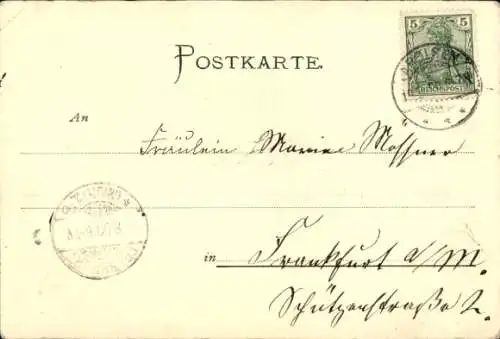 POSTKARTE
5 5
REICHSPOST
An Fräulein Marie Mossner
in Frankfurt a/M.
Schützenstraße 2.